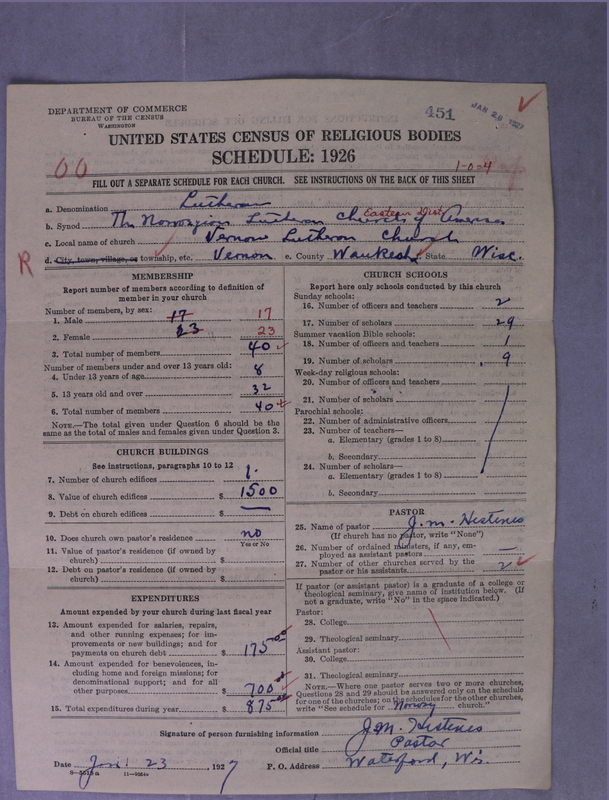 DEPARTMENT OF COMMERCE
BUREAU OF THE CENSUS
WASHINGTON
451
JAN 26 1927
UNITED STATES CENSUS OF RELIGIOUS BODIES
SCHEDULE: 1926
00
1-0-4
FILL OUT A SEPARATE SCHEDULE FOR EACH CHURCH. SEE INSTRUCTIONS ON THE BACK OF THIS SHEET
a. Denomination Lutheran
Eastern Dist.
b. Synod The Norwegian Lutheran Church of America
c. Local name of church Vernon Lutheran Church
R
d. City, town, village, or township, etc. Vernon e. County Waukesha f. State Wisc.
MEMBERSHIP
Report number of members according to definition of
member in your church
Number of members, by sex:
1. Male 17 17
2. Female 23 23
3. Total number of members 40
Number of members under and over 13 years old:
4. Under 13 years of age 8
5. 13 years old and over 32
6. Total number of members 40
NOTE.—The total given under Question 6 should be the
same as the total of males and females given under Question 3.
CHURCH BUILDINGS
See instructions, paragraphs 10 to 12
7. Number of church edifices 1.
8. Value of church edifices $ 1500
9. Debt on church edifices $ —
10. Does church own pastor's residence no
Yes or No
11. Value of pastor's residence (if owned by
church) $
12. Debt on pastor's residence (if owned by
church) $
EXPENDITURES
Amount expended by your church during last fiscal year
13. Amount expended for salaries, repairs,
and other running expenses; for im-
provements or new buildings; and for
payments on church debt $ 175.00
14. Amount expended for benevolences, in-
cluding home and foreign missions; for
denominational support; and for all
other purposes $ 700
15. Total expenditures during year $ 875
CHURCH SCHOOLS
Report here only schools conducted by this church
Sunday schools:
16. Number of officers and teachers 2
17. Number of scholars 29
Summer vacation Bible schools:
18. Number of officers and teachers 1
19. Number of scholars 9
Week-day religious schools:
20. Number of officers and teachers
21. Number of scholars
Parochial schools:
22. Number of administrative officers
23. Number of teachers—
a. Elementary (grades 1 to 8)
b. Secondary
24. Number of scholars—
a. Elementary (grades 1 to 8)
b. Secondary
PASTOR
25. Name of pastor J. M. Hestenes
(If church has no pastor, write "None")
26. Number of ordained ministers, if any, em-
ployed as assistant pastors —
27. Number of other churches served by the
pastor or his assistants 2
If pastor (or assistant pastor) is a graduate of a college or
theological seminary, give name of institution below. (If
not a graduate, write "No" in the space indicated.)
Pastor:
28. College
29. Theological seminary
Assistant pastor:
30. College
31. Theological seminary
NOTE.—Where one pastor serves two or more churches,
Questions 28 and 29 should be answered only on the schedule
for one of the churches; on the schedules for the other churches,
write "See schedule for Norway church."
Signature of person furnishing information J. M. Hestenes
Official title Pastor
Date Jan. 23, 1927 P. O. Address Waterford, Wis.